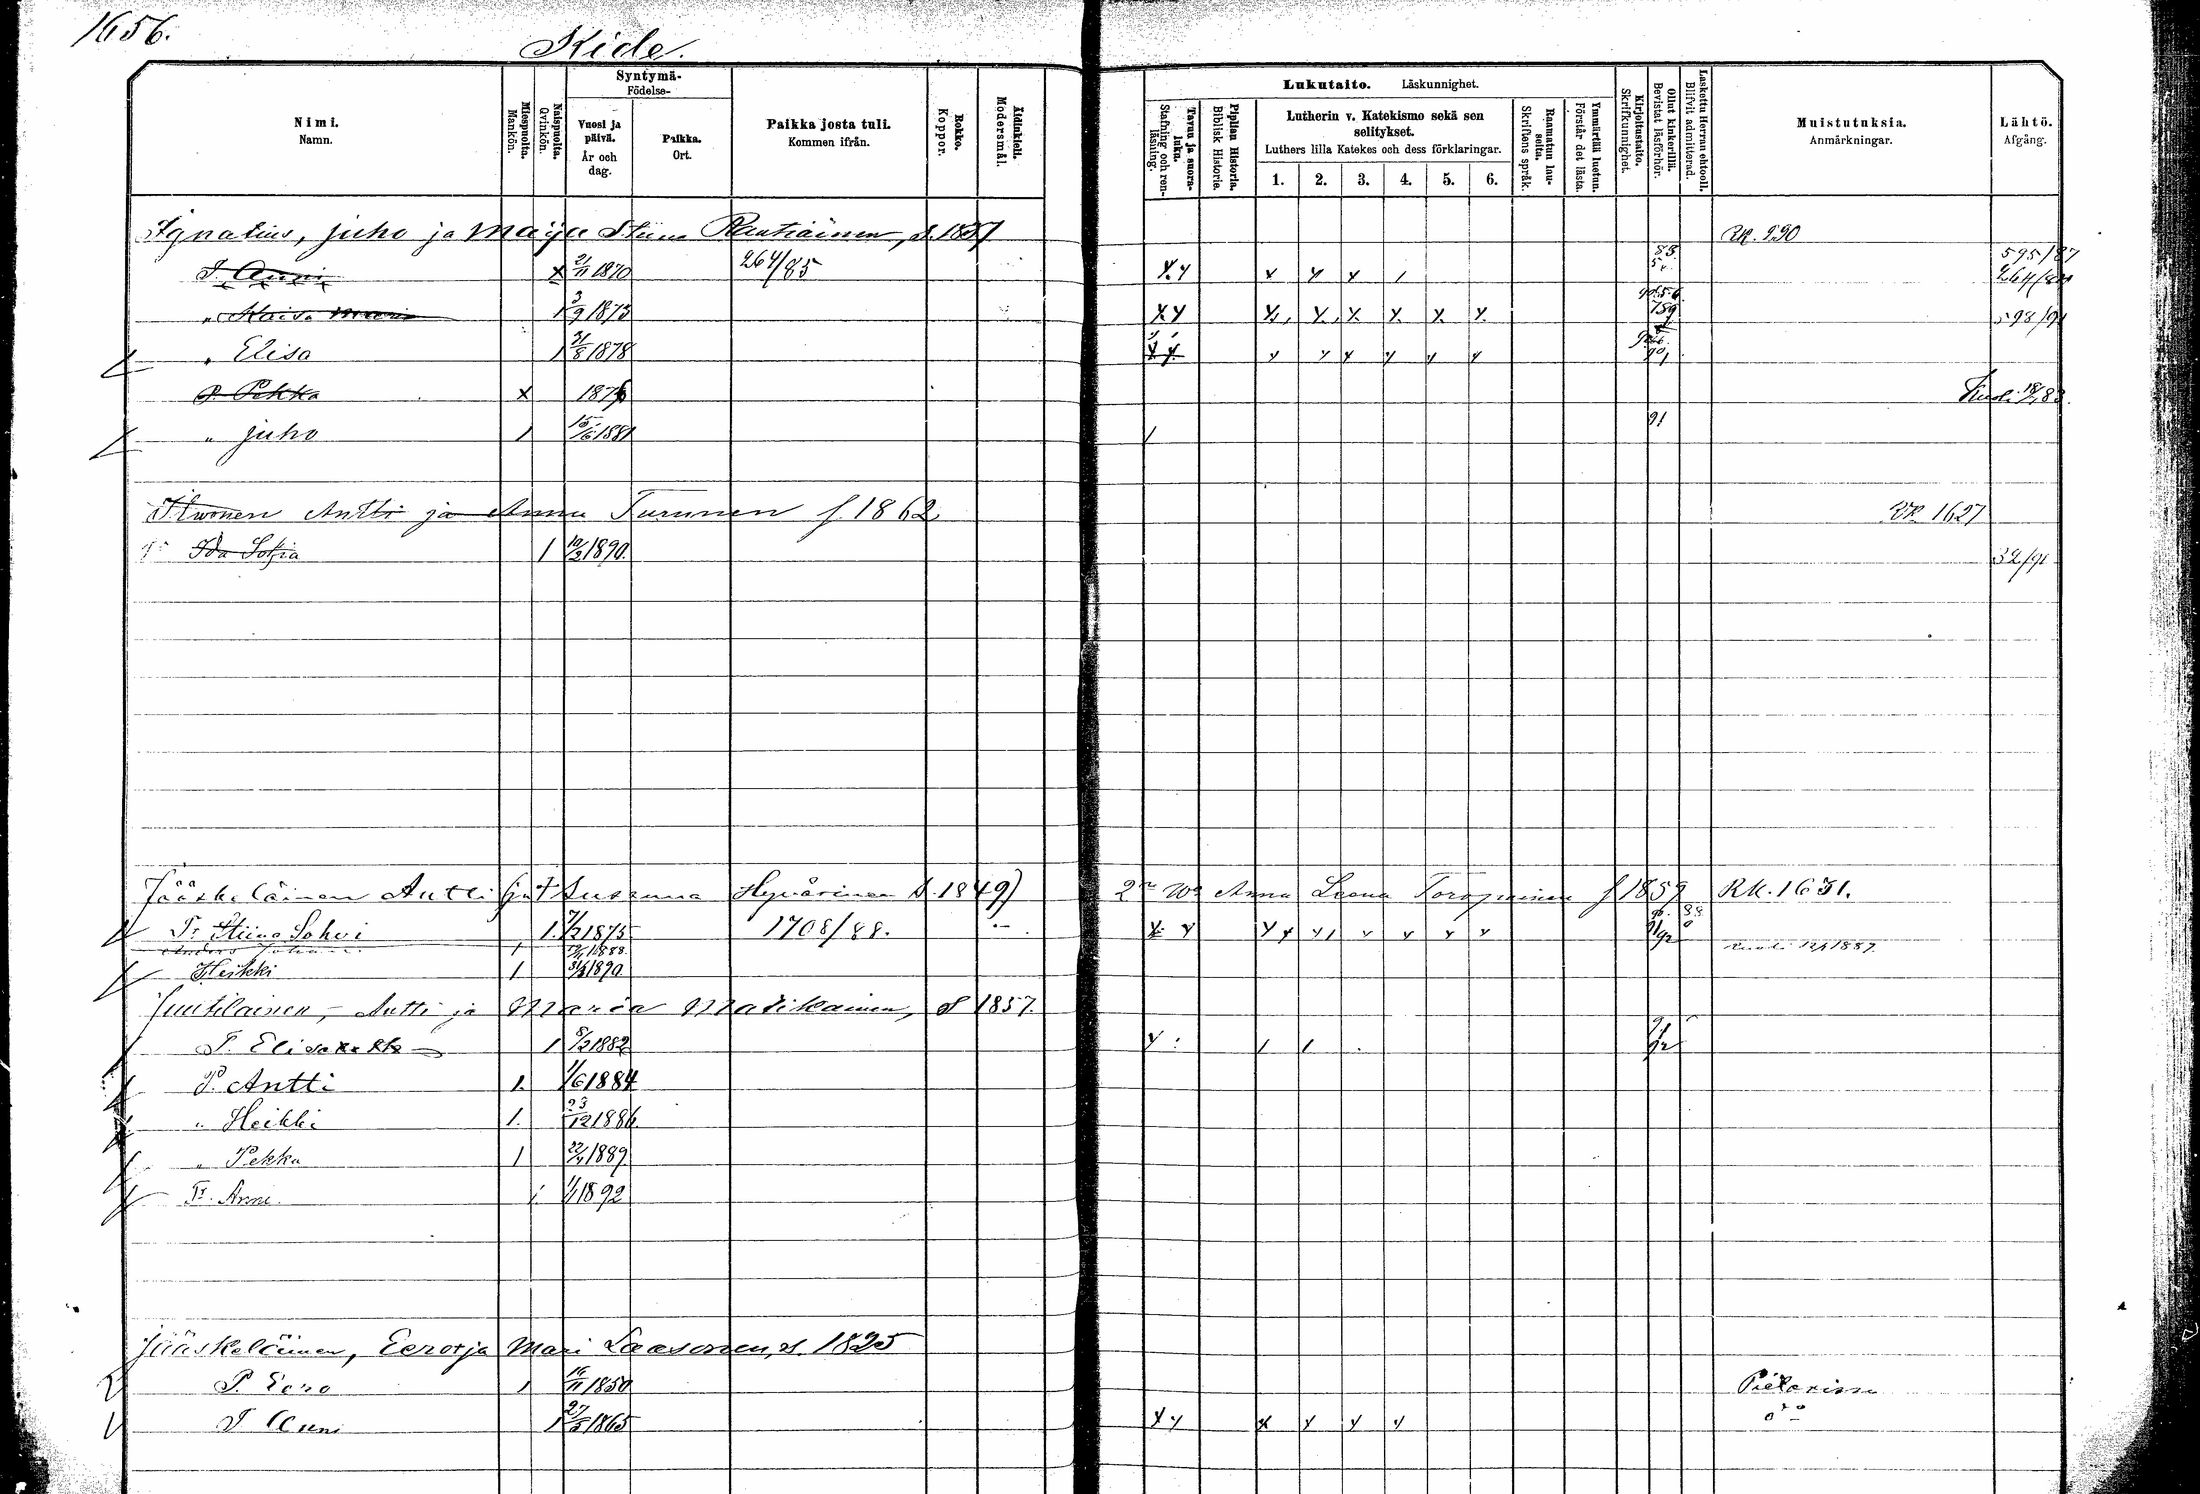 1656.
Kide.
Nimi.
Namn.
Miespuolta.
Mankön.
Naispuolta.
Qvinkön.
Syntymä-
Födelse-
Vuosi ja päivä.
År och dag.
Paikka.
Ort.
Paikka josta tuli.
Kommen ifrån.
Rokko.
Koppor.
Äidinkieli.
Modersmål.
Tavuu ja suora-luku.
Stafning och ren-läsning.
Piplian Historia.
Biblisk Historie.
Lukutaito. Läskunnighet.
Lutherin v. Katekismo sekä sen selitykset.
Luthers lilla Katekes och dess förklaringar.
1. 2. 3. 4. 5. 6.
Raamatun lau-seita.
Skriftens språk.
Ymmärtää luetun.
Förstår det lästa.
Kirjoitustaito.
Skrifkunnighet.
Ollut kinkerillä.
Bevistat läsförhör.
Laskettu Herran ehtooll.
Blifvit admitterad.
Muistutuksia.
Anmärkningar.
Lähtö.
Afgång.
Ignatius, Juho ja Maija Stiina Rautiainen, s. 1837 RK. 990
T. Anni x 2/11 1870 264/85 x y x y x 1 83 595/87 264/84
" Kaisa Maria 1 3/9 1873 x y 598/91
" Elisa 1 21/8 1878
P. Pekka x 1876 Kuoli 18/ 83.
" Juho 1 15/6 1881 1 91
Ilwonen Antti ja Anna Turunen f 1862 RK 1627
Ida Sofia 1 10/2 1890. 32/91
Jääskeläinen Antti (ja † Susanna Hyvärinen s. 1849) 2n Wo Anna Leena Toropainen f 1859 RK. 1631.
Tr Stiina Sohvi 1. 7/2 1875 1708/88.
Anders Johan 1 1888. kuoli 1889.
Heikki 1 31/3 1890
Juutilainen, Antti ja Maria Matikainen, s 1857.
T. Elisabeth 1 8/2 1882 1 1 91 92
P. Antti 1. 1/6 1884
" Heikki 1. 23/12 1886
" Pekka 1 22/4 1889
Tr. Anna. 1. 1/1 1892
Jääskeläinen, Eero ja Mari Laasonen, s. 1825
P. Eero 1 16/11 1850 Pielavissa
T Anni 1 27/5 1865 x y x y y y